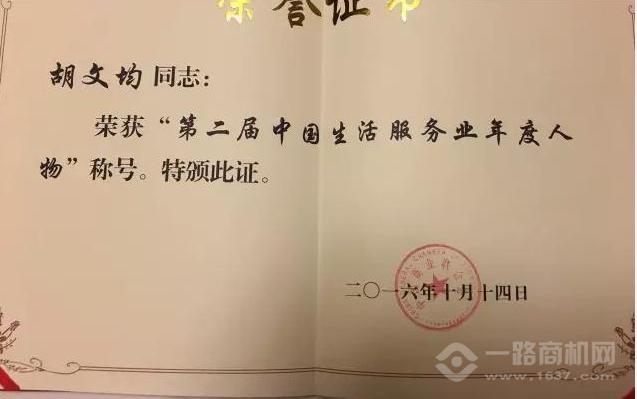 荣誉证书
胡文均同志：
荣获“第二届中国生活服务业年度人
物”称号。特颁此证。
二〇一六年十月十四日
一路商机网
www.1637.com